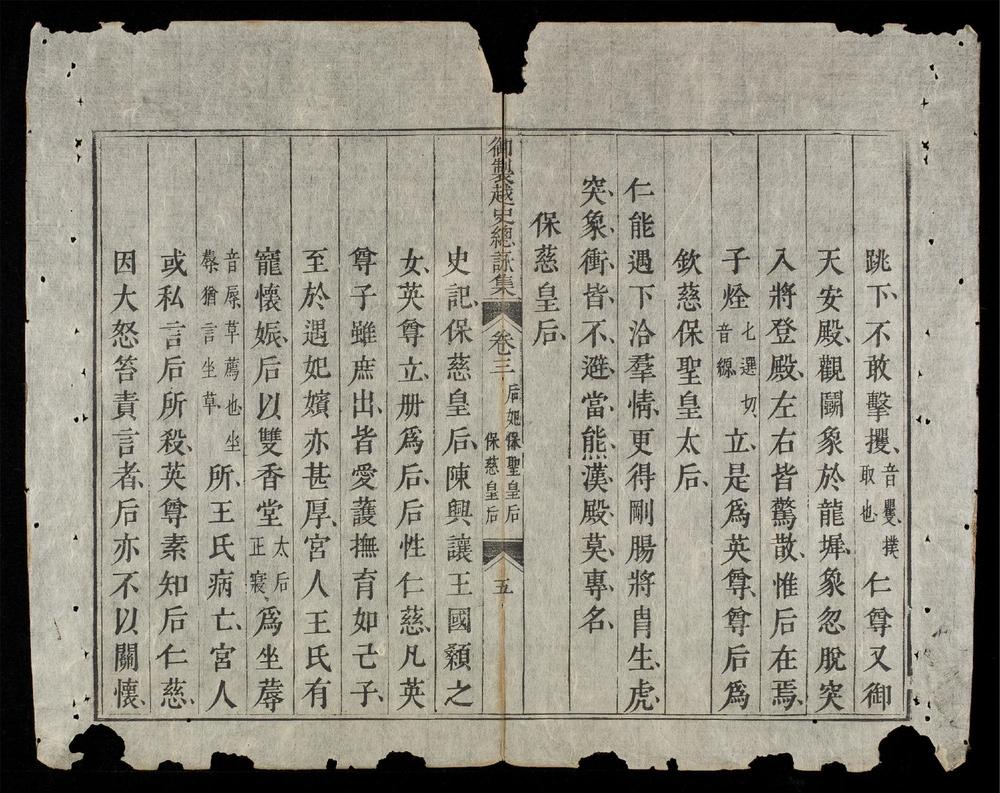 跳下、不敢擊攫、音矍、撲取也仁尊又御
天安殿、觀鬬象於龍墀、象忽脫突
入將登殿、左右皆驚散、惟后在焉、
子烇七選切、音縓立、是爲英尊、尊后爲
欽慈保聖皇太后、
仁能遇下洽羣情、更得剛腸將胄生、虎
突象衝、皆不避、當熊漢殿莫專名、
保慈皇后、
御製越史總詠集 卷三 后妃保聖皇后 保慈皇后 五
史記、保慈皇后、陳興讓王國顙之
女、英尊立册爲后、后性仁慈、凡英
尊子雖庶出、皆愛護撫育如己子、
至於遇妃嬪亦甚厚、宮人王氏有
寵懷娠、后以雙香堂太后正寢、爲坐蓐
音辱草薦也坐蓐猶言坐草所、王氏病亡、宮人
或私言后所殺、英尊素知后仁慈、
因大怒笞責言者、后亦不以關懷、